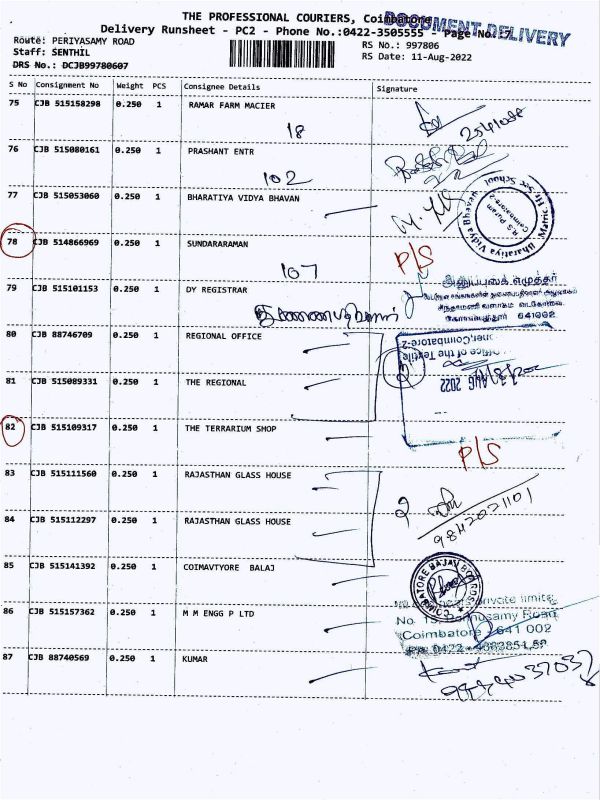 THE PROFESSIONAL COURIERS, Coimbatore
Delivery Runsheet - PC2 - Phone No.:0422-3505555 - Page No.:7
DOCUMENT DELIVERY
Route: PERIYASAMY ROAD
RS No.: 997806
Staff: SENTHIL
RS Date: 11-Aug-2022
DRS No.: DCJB99780607
S No Consignment No Weight PCS Consignee Details Signature
75 CJB 515158298 0.250 1 RAMAR FARM MACIER
18
76 CJB 515080161 0.250 1 PRASHANT ENTR
102
77 CJB 515053060 0.250 1 BHARATIYA VIDYA BHAVAN
Bharatiya Vidya Bhavan Matric. Hr. Sec School
R.S Puram
Coimbatore-2
78 CJB 514866969 0.250 1 SUNDARARAMAN
P/S
107
79 CJB 515101153 0.250 1 DY REGISTRAR
அனுப்புகை எழுத்தர்
641002
80 CJB 88746709 0.250 1 REGIONAL OFFICE
Office of the Textile
Coimbatore-2
AUG 2022
81 CJB 515089331 0.250 1 THE REGIONAL
2
82 CJB 515109317 0.250 1 THE TERRARIUM SHOP
P/S
83 CJB 515111560 0.250 1 RAJASTHAN GLASS HOUSE
2
9842021101
84 CJB 515112297 0.250 1 RAJASTHAN GLASS HOUSE
85 CJB 515141392 0.250 1 COIMAVTYORE BALAJ
86 CJB 515157362 0.250 1 M M ENGG P LTD
private limite
No. 15, Ponnusamy Road
Coimbatore - 641 002
87 CJB 88740569 0.250 1 KUMAR